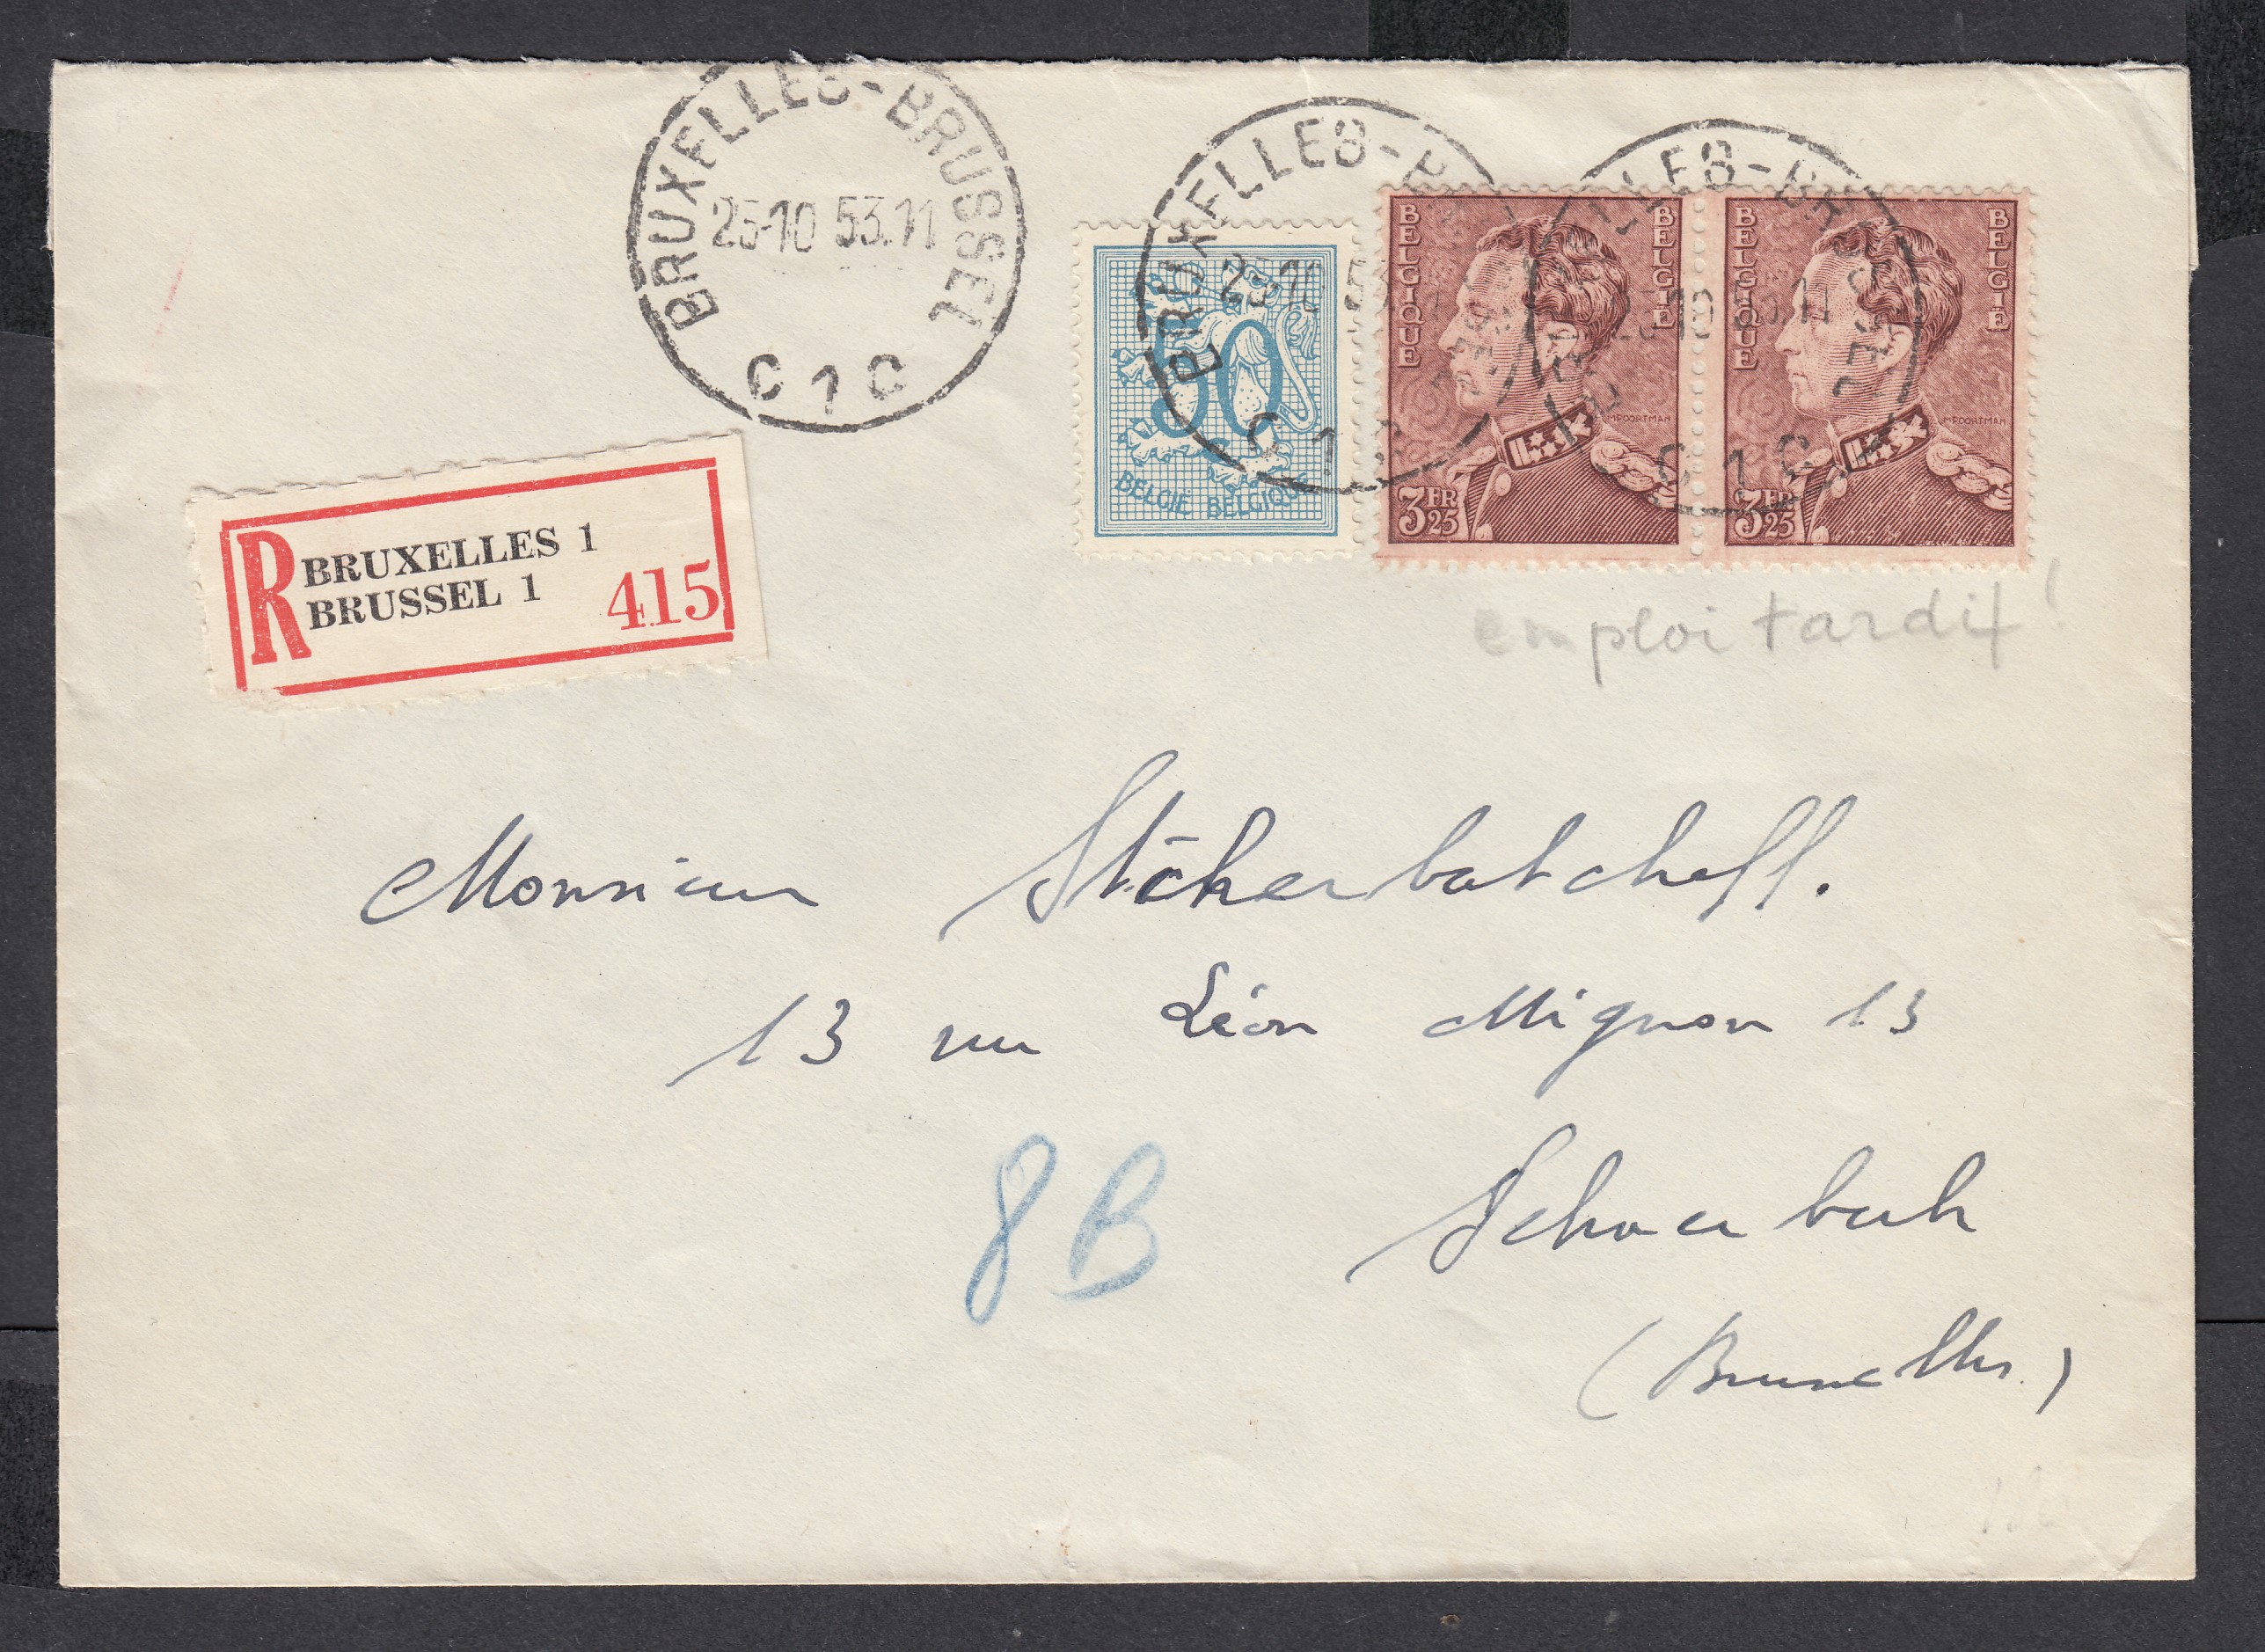 BRUXELLES-BRUSSEL
25-10 53.11
C 1 C
BRUXELLES-B
25-10 5
C 1 C
LLES-BRUSSEL
10 53 11
C 1 C
50
BELGIË BELGIQUE
BELGIQUE
BELGIË
MPOORTMAN
3 FR 25
BELGIQUE
BELGIË
MPOORTMAN
3 FR 25
R BRUXELLES 1
BRUSSEL 1 415
emploi tardif !
Monsieur Stcherbatcheff.
13 rue Léon Mignon 13
8B
Schaerbeek
(Bruxelles)